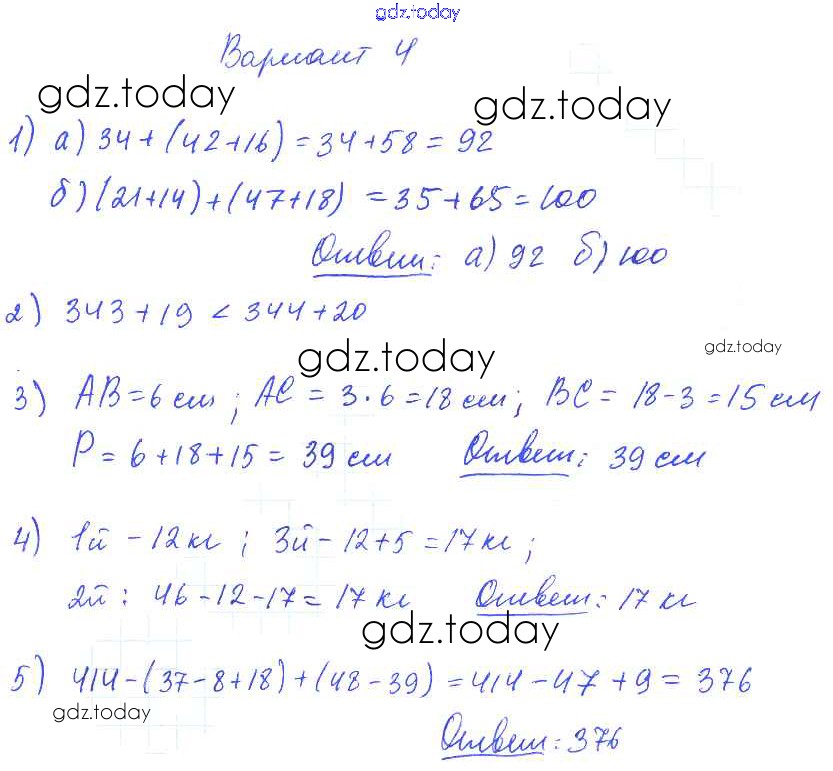 gdz.today
Вариант 4
gdz.today gdz.today
1) а) 34+(42+16)=34+58=92
б) (21+14)+(47+18) =35+65=100
Ответ: а) 92 б) 100
2) 343+19 < 344+20
gdz.today gdz.today
3) AB=6 см; AC = 3·6=18 см; BC = 18-3=15 см
P = 6+18+15= 39 см Ответ: 39 см
4) 1й - 12 кг; 3й - 12+5 =17 кг;
2й: 46-12-17= 17 кг Ответ: 17 кг
gdz.today
5) 414-(37-8+18)+(48-39) =414-47+9= 376
gdz.today
Ответ: 376